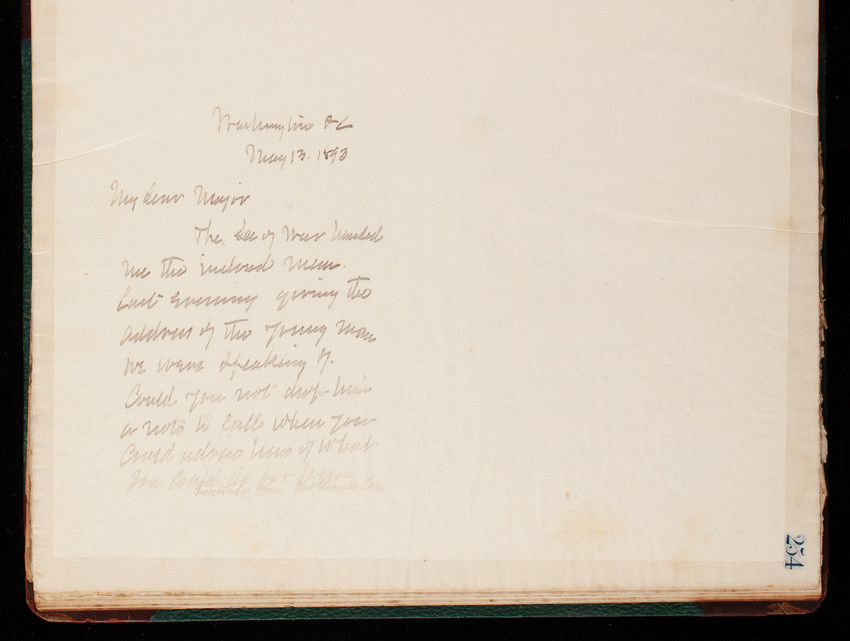 Washington DC
May 13. 1893
My dear Major
The Sec of War handed
me the inclosed Mem.
last evening giving the
address of the young man
we were speaking of.
Could you not drop him
a note to call when you
could advise him of what
you could do for him
254